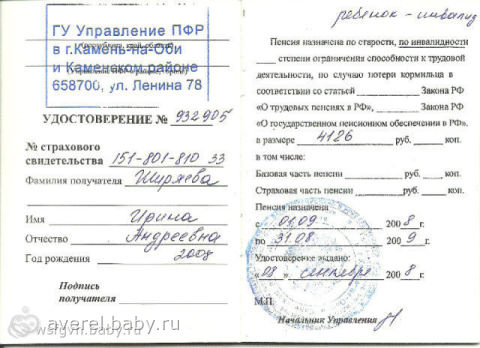 ГУ Управление ПФР
в г.Камень-на-Оби
и Каменском районе
658700, ул. Ленина 78
УДОСТОВЕРЕНИЕ № 932905
№ страхового
свидетельства 151-801-810 33
Фамилия получателя Ширяева
Имя Ирина
Отчество Андреевна
Год рождения 2008
Подпись
получателя
ребенок - инвалид
Пенсия назначена по старости, по инвалидности
степени ограничения способности к трудовой
деятельности, по случаю потери кормильца в
соответствии со статьей Закона РФ
«О трудовых пенсиях в РФ», Закона РФ
«О государственном пенсионном обеспечении в РФ»,
в размере 4126 руб. коп.
в том числе:
Базовая часть пенсии руб. коп.
Страховая часть пенсии руб. коп.
Пенсия назначена
с 01.09 2008 г.
по 31.08 2009 г.
Удостоверение выдано:
«08» сентября 2008 г.
М.П.
Начальник Управления
ayerel.baby.ru